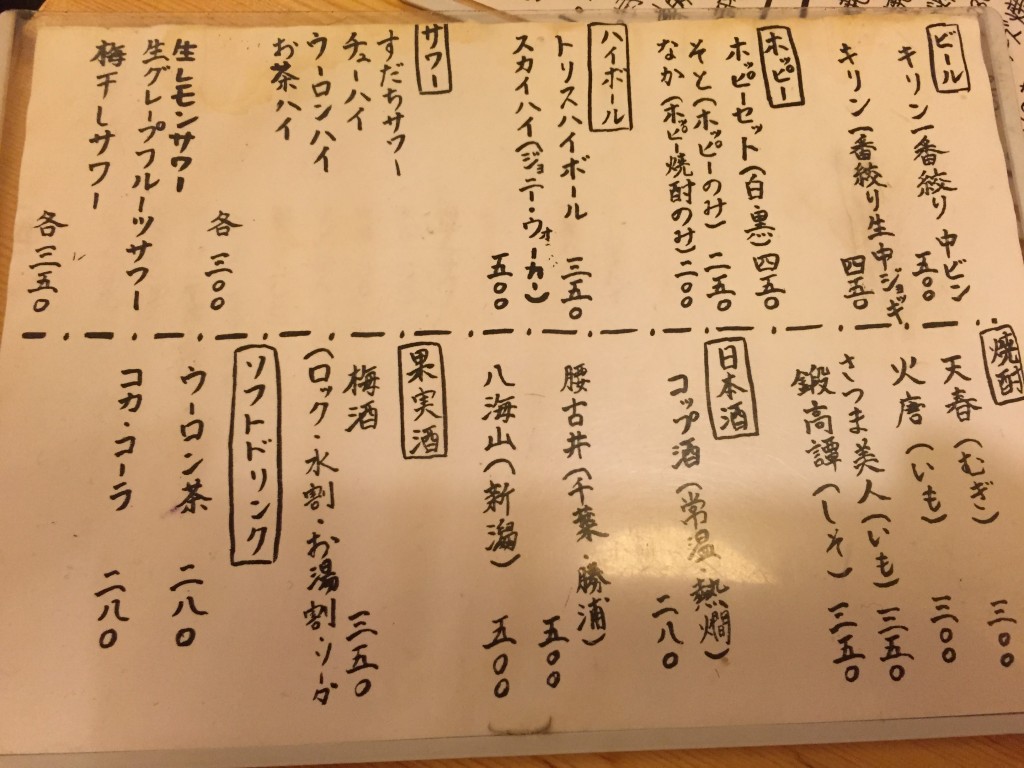 ビール
キリン一番絞り 中ビン
五〇〇
キリン一番絞り生中ジョッキ
四五〇
ホッピー
ホッピーセット(白・黒)四五〇
そと(ホッピーのみ)二五〇
なか(ホッピー焼酎のみ)二〇〇
ハイボール
トリスハイボール 三五〇
スカイハイ(ジョニー・ウォーカー)
五〇〇
サワー
すだちサワー
チューハイ
ウーロンハイ
お茶ハイ
各 三〇〇
生レモンサワー
生グレープフルーツサワー
梅干しサワー
各 三五〇
焼酎
天春(むぎ) 三〇〇
火唐(いも) 三〇〇
さつま美人(いも) 三五〇
鍛高譚(しそ) 三五〇
日本酒
コップ酒(常温・熱燗)
二八〇
腰古井(千葉・勝浦)
五〇〇
八海山(新潟) 五〇〇
果実酒
梅酒 三五〇
(ロック・水割・お湯割・ソーダ
ソフトドリンク
ウーロン茶 二八〇
コカ・コーラ 二八〇